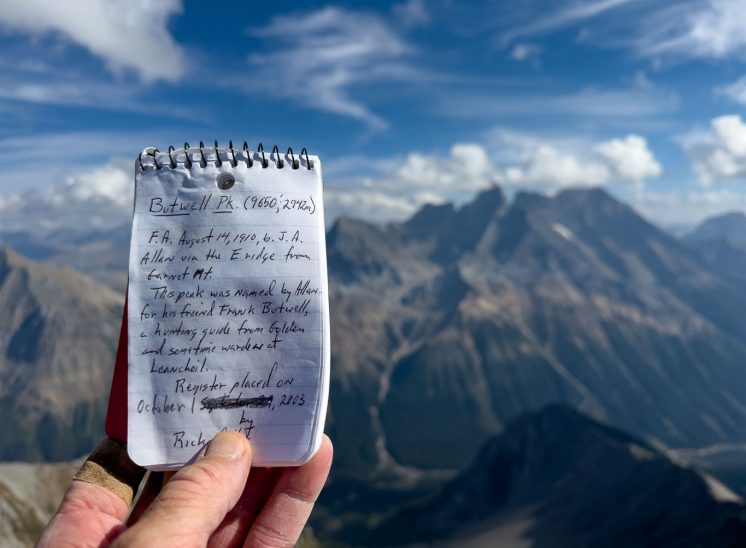 Butwell Pk. (9650', 2942m)
F.A. August 14, 1910, by J.A.
Allan via the E ridge from
Garnet Mt.
This peak was named by Allan
for his friend Frank Butwell,
a hunting guide from Golden
and sometime warden at
Leanchoil.
Register placed on
October 1, 2003
by
Rick